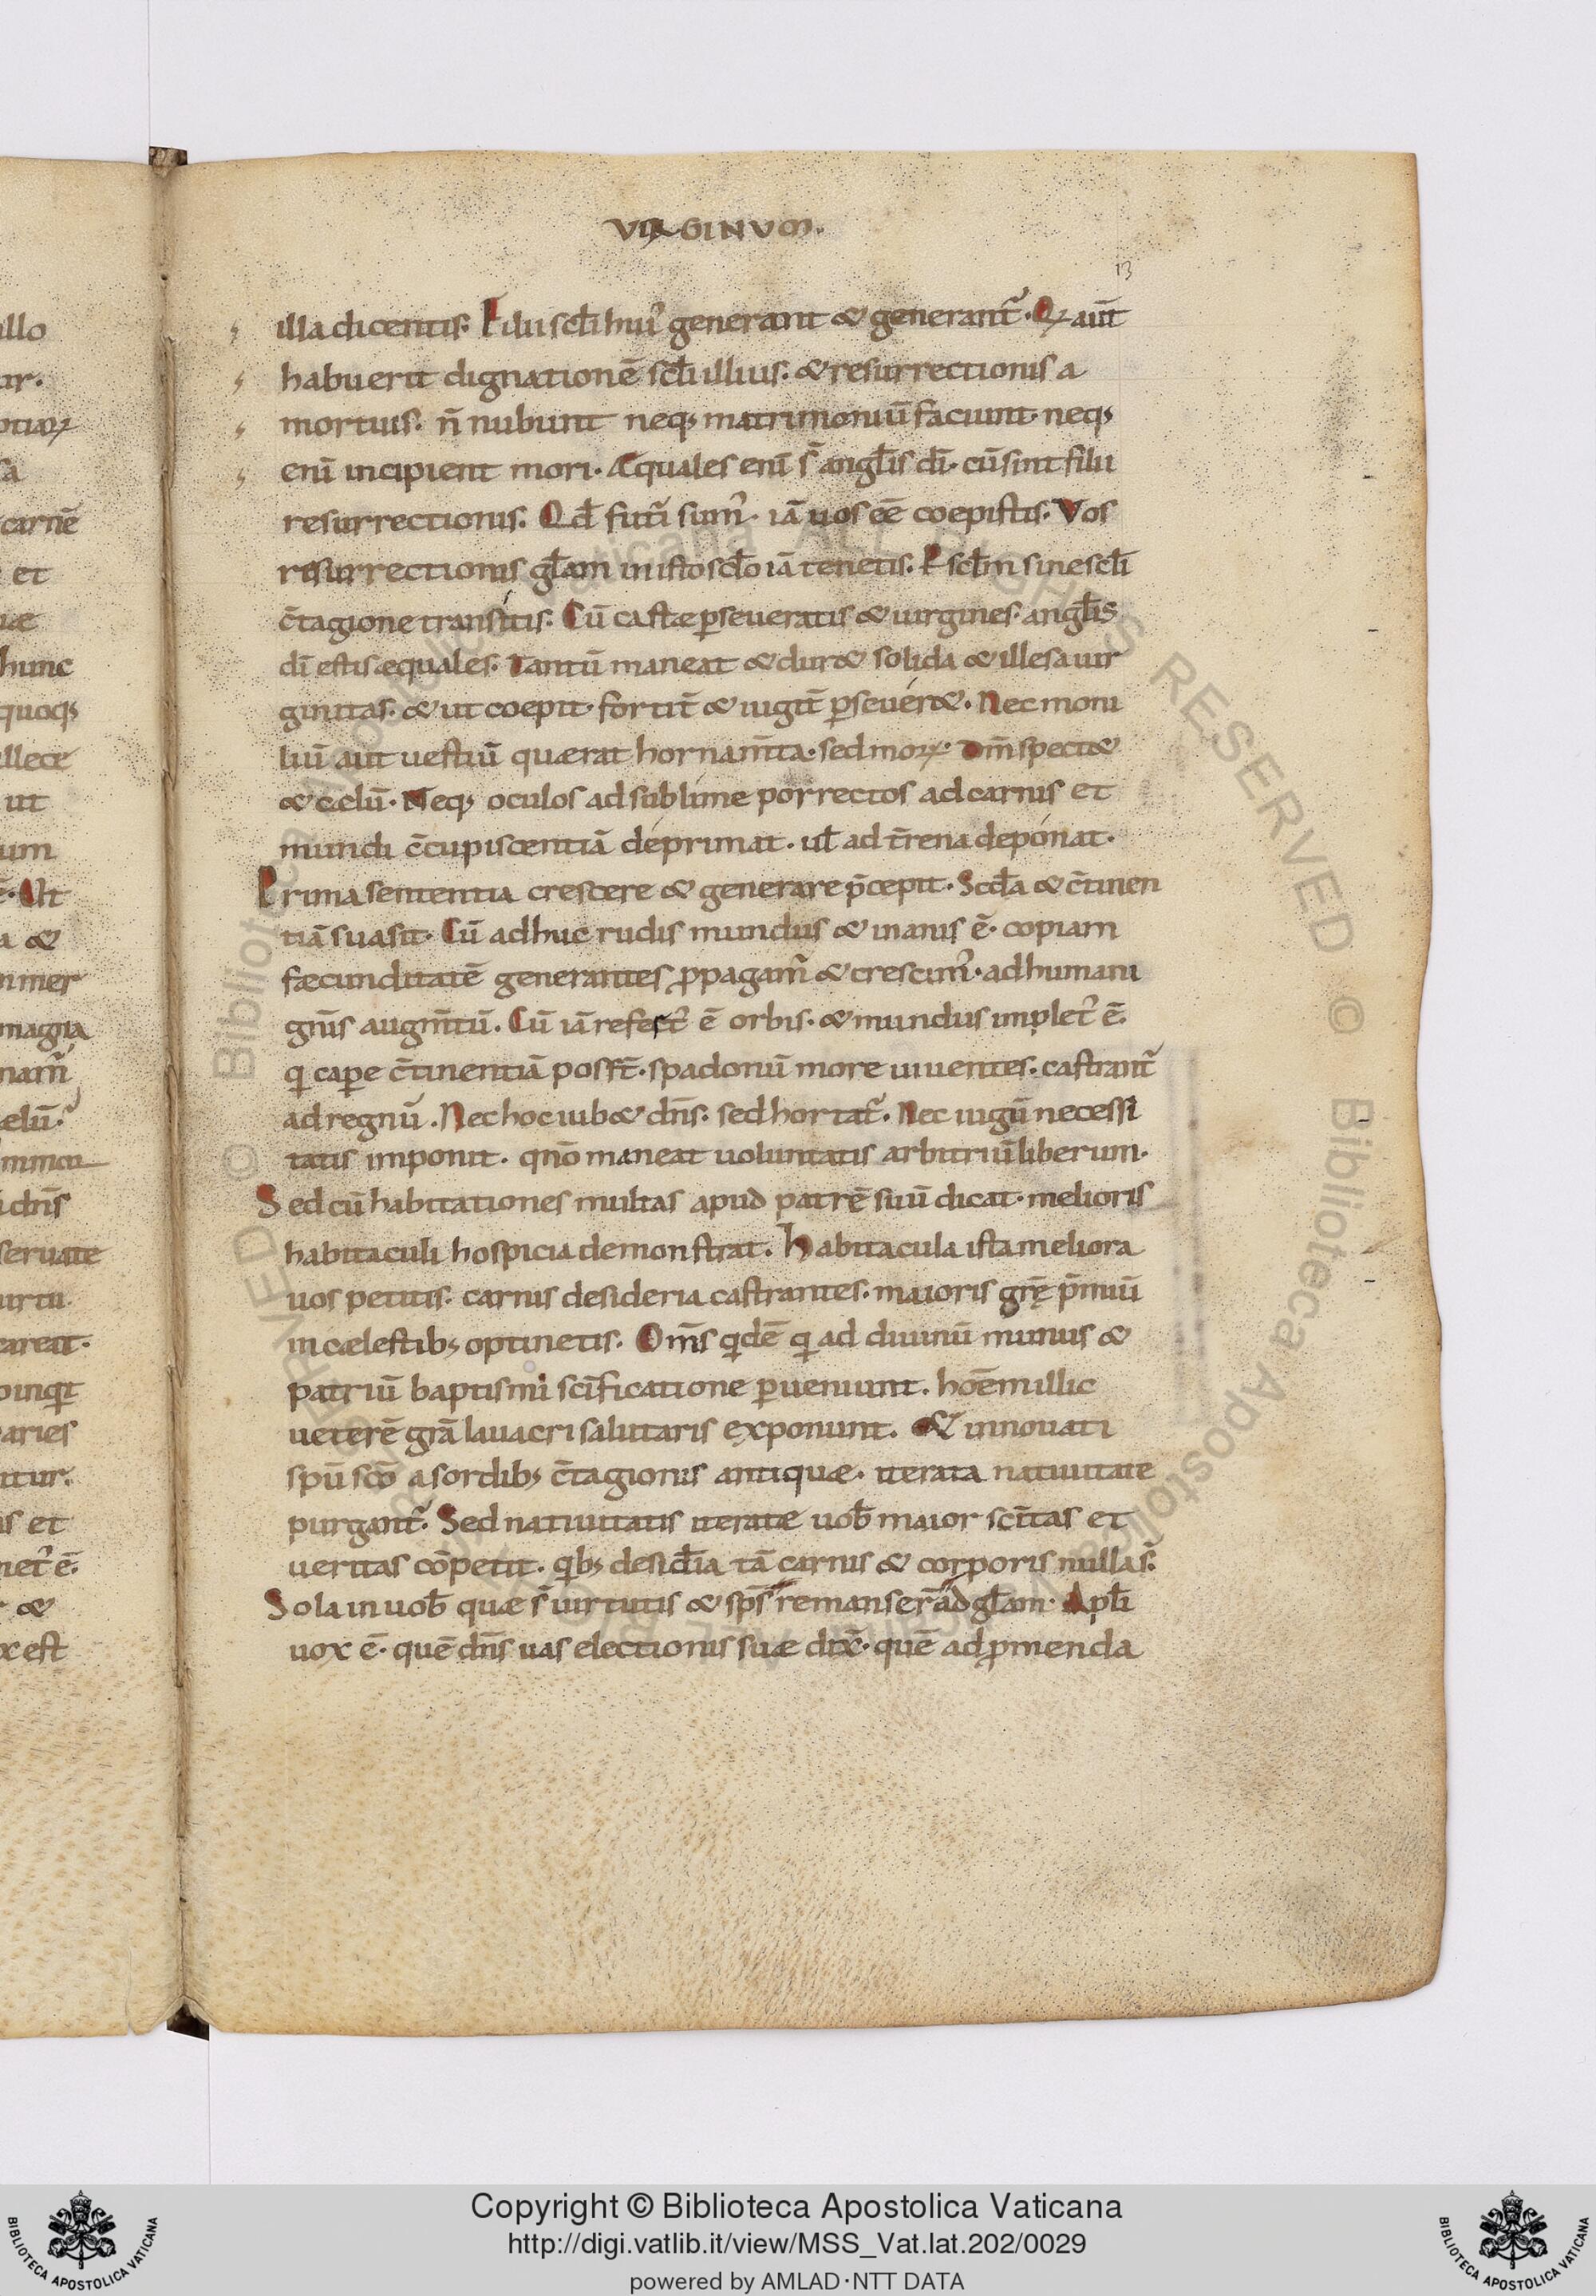 VIRGINUM.
13
illa dicentis. Filii sc̄li huiꝰ generant & generant᷑. Qꝫ aūt
habuerit dignationē sc̄li illius. & resurrectionis a
mortuis. n̄ nubunt neqꝫ matrimoniū faciunt. neqꝫ
enī incipient mori. Æquales enī s̄ angl̄is dī. cū sint filii
resurrectionis. Qd̄ futī sumꝰ. iā uos eē coepistis. Vos
resurrectionis gl̄am in isto sc̄lo iā tenetis. P sc̄lm sine sc̄li
c̄tagione transitis. Cū castæ ꝑseueratis & uirgines. angl̄is
dī estis æquales. Tantū maneat & dur& solida & illesa uir
ginitas. & ut coepit. fortit̄ & iugit̄ ꝑseuer&. Nec moni
liū aut uestiū quærat hornam̄ta. sed moꝝ. Dm̄ spect&
& cælū. Neqꝫ oculos ad sublime porrectos ad carnis et
mundi c̄cupiscentiā deprimat. ul̄ ad t̄rena deponat.
Prima sententia crescere & generare p̄cepit. Scd̄a & c̄tinen
tiā suasit. Cū adhuc rudis mundus & inanis ē. copiam
fæcunditatē generantes ꝓpagam᷑ & crescimꝰ. ad humani
gn̄is augm̄tū. Cū iā refertꝰ ē orbis. & mundus impletꝰ ē.
qi capere c̄tinentiā poss̄t. spadonū more uiuentes. castrant᷑
ad regnū. Nec hoc iub& dn̄s. sed hortat᷑. Nec iugū necessi
tatis imponit. qn̄o maneat uoluntatis arbitriū liberum.
Sed cū habitationes multas apud patrē suū dicat. melioris
habitaculi hospicia demonstrat. Habitacula ista meliora
uos petitis. carnis desideria castrantes. maioris grę̄ p̄miū
in cælestibꝫ optinetis. Om̄s qidē qi ad diuinū munus &
patriū baptismi sc̄ificatione ꝑueniunt. hoēm illic
ueterē grā lauacri salutaris exponunt. & innouati
spū sc̄o a sordibꝫ c̄tagionis antiquæ. iterata natiuitate
purgant᷑. Sed natiuitatis iteratæ uob̄ maior sc̄itas et
ueritas cōpetit. qibꝫ desid̄ia tā carnis & corporis nulla s̄.
Sola in uob̄ quæ s̄ uirtutis & sp̄s remanserā ad gl̄am. Apl̄i
uox ē. quē dn̄s uas electionis suæ dix̄. quē ad ꝓmenda
Copyright © Biblioteca Apostolica Vaticana
http://digi.vatlib.it/view/MSS_Vat.lat.202/0029
powered by AMLAD·NTT DATA